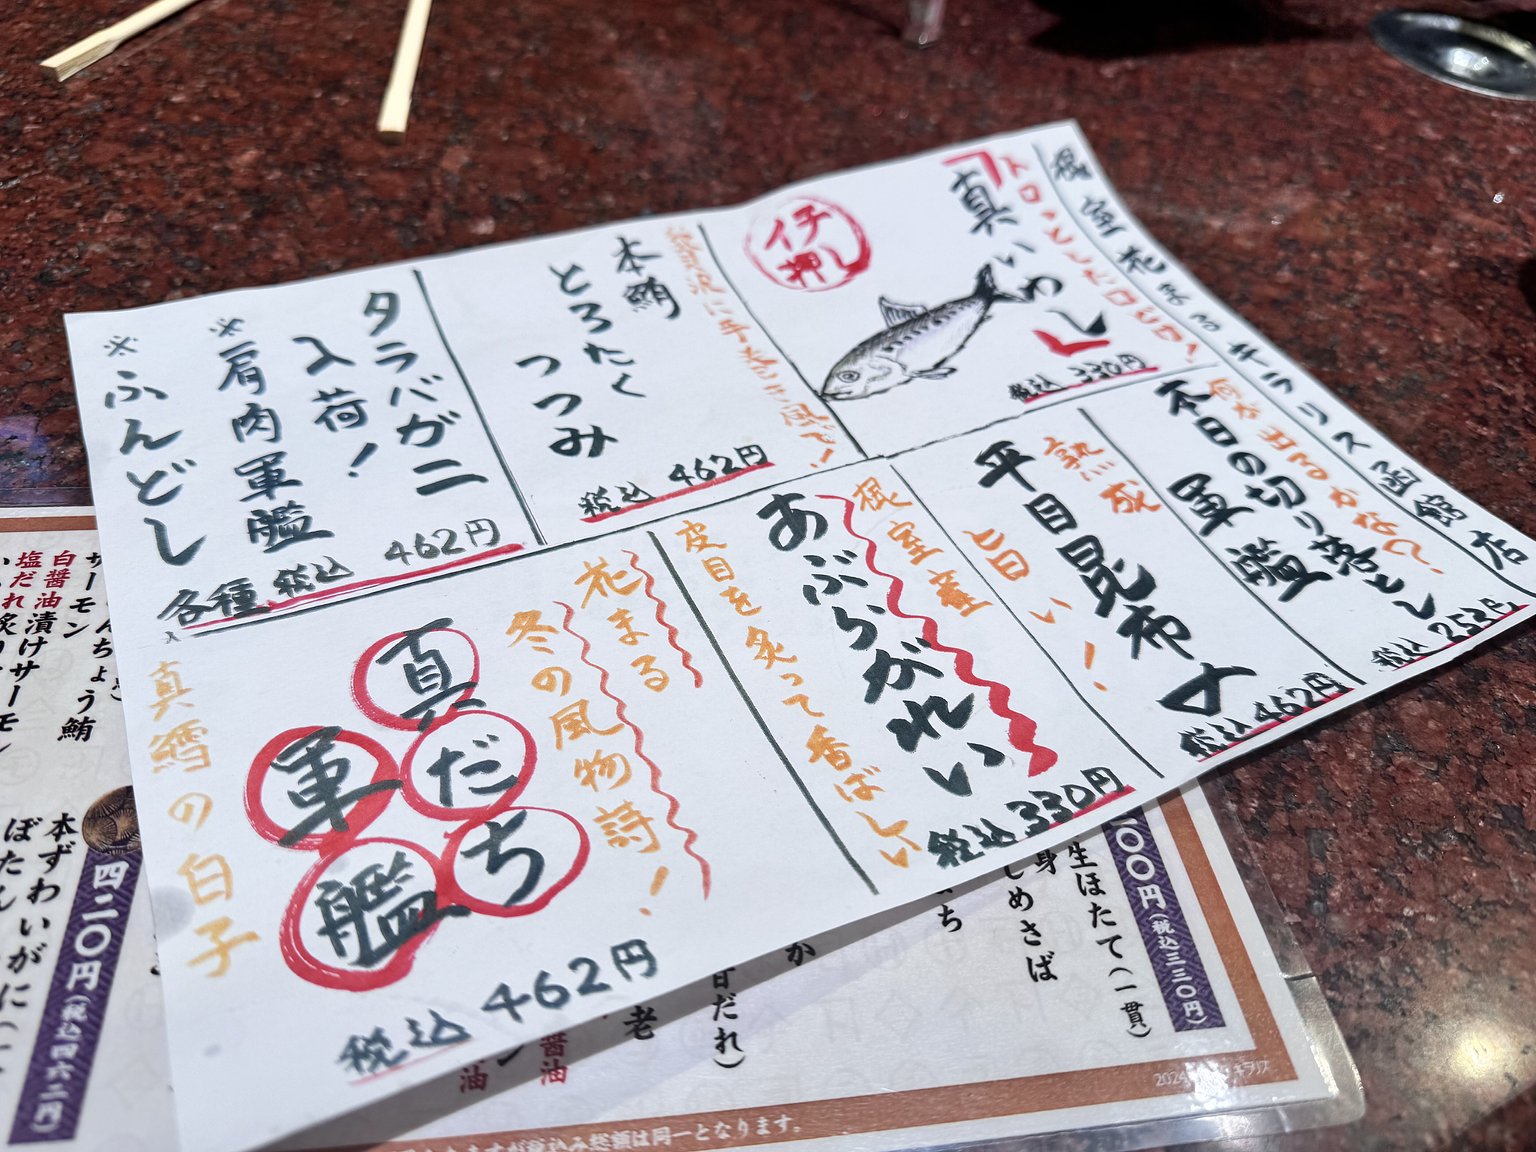 根室花まるキラリス函館店
トロッとしトロける!
真いわし
イチ押し
税込 330円
贅沢に手巻き風で!
本鮪
とろたく
つつみ
税込 462円
タラバガニ
入荷!
※肩肉軍艦
※ふんどし
各種 税込 462円
何が出るかな?
本日の切り落とし
軍艦
税込 253円
熟成
旨い!
平目昆布〆
税込 462円
根室産
あぶらがれい
皮目を炙って香ばしい
税込 330円
花まる
冬の風物詩!
真だち
軍艦
真鱈の白子
税込 462円
サーモン
白醤油漬けサーモン
塩だれ炙り
本ずわいがに
ぼたん
四二〇円(税込四六二円)
〇〇円(税込三三〇円)
生ほたて(一貫)
しめさば
甘だれ)
醤油
税込み総額は同一となります。